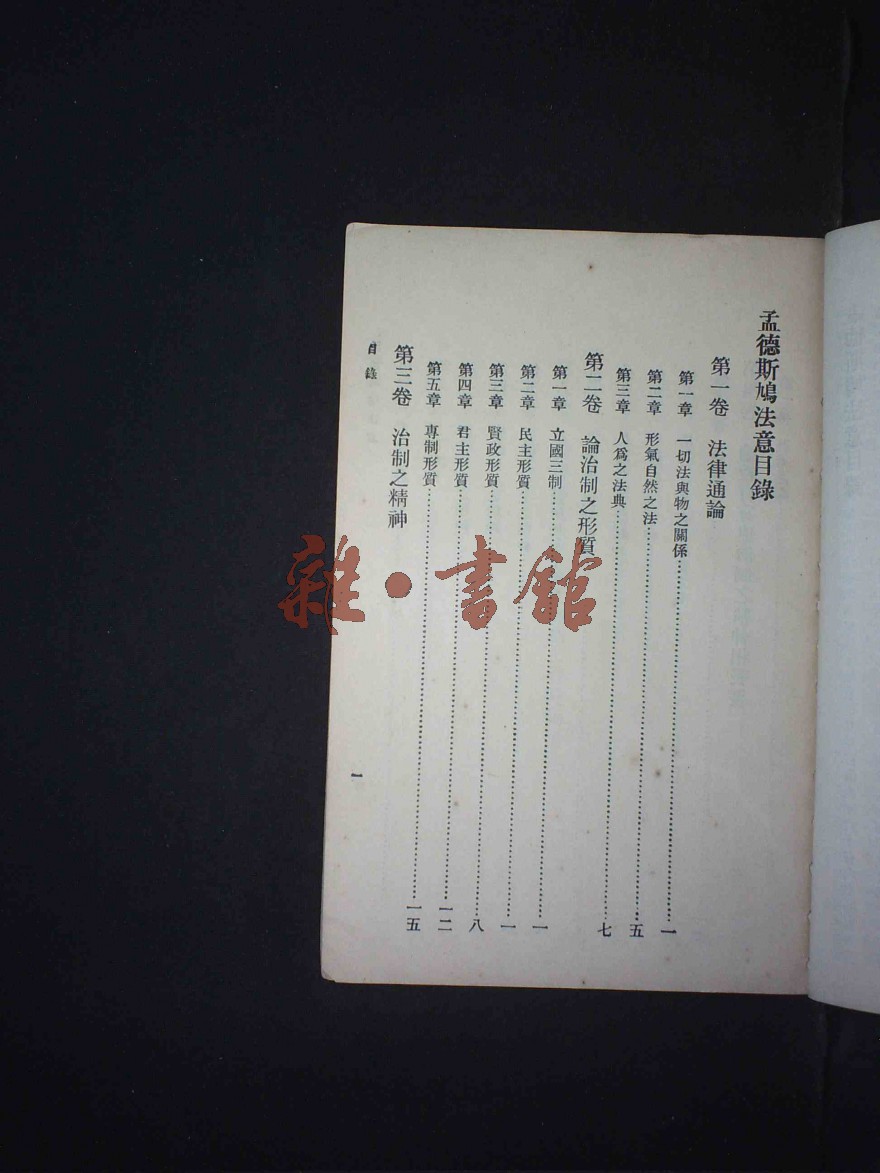 孟德斯鳩法意目錄
第一卷 法律通論
第一章 一切法與物之關係……一
第二章 形氣自然之法……五
第三章 人爲之法典……七
第二卷 論治制之形質
第一章 立國三制……一
第二章 民主形質……一
第三章 賢政形質……八
第四章 君主形質……一二
第五章 專制形質……一五
第三卷 治制之精神
目錄
一
雜·書館